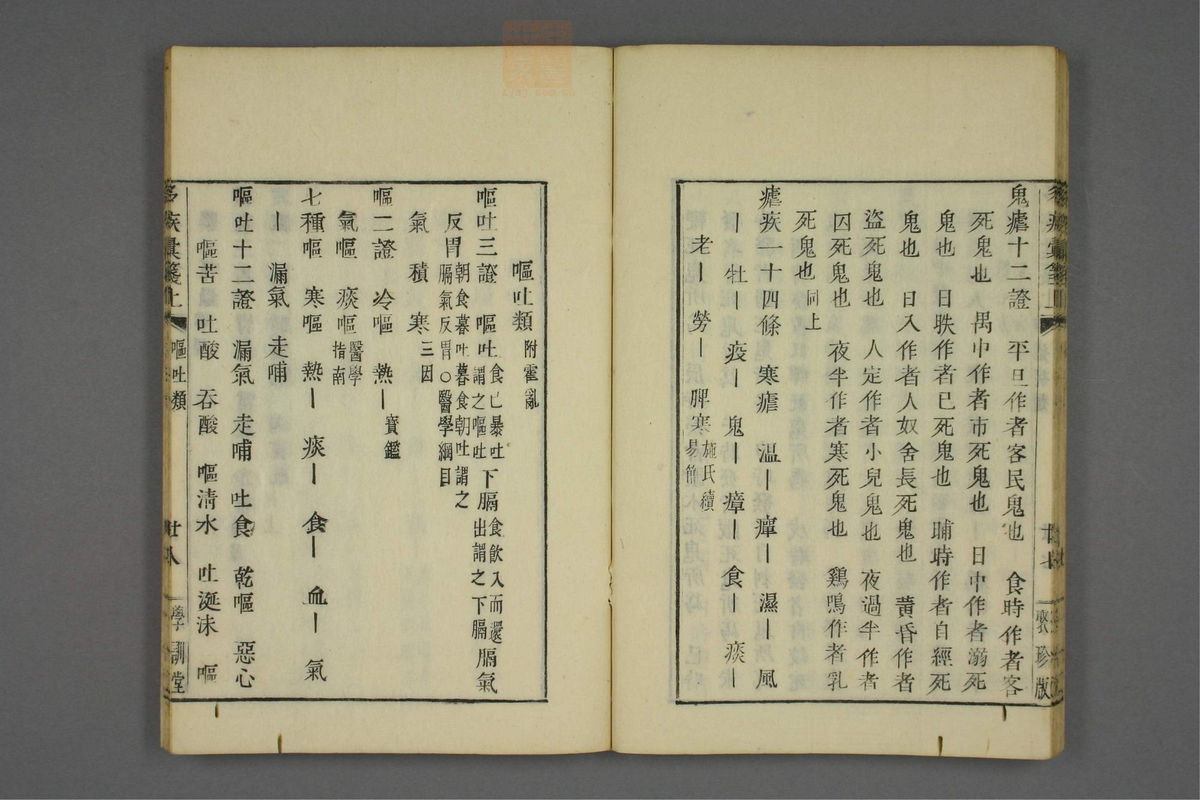 鬼瘧十二證　平旦作者客民鬼也　食時作者客
死鬼也　禺中作者市死鬼也　日中作者溺死
鬼也　日昳作者已死鬼也　晡時作者自經死
鬼也　日入作者人奴舍長死鬼也　黄昏作者
盜死鬼也　人定作者小兒鬼也　夜過半作者
囚死鬼也　夜半作者寒死鬼也　鷄鳴作者乳
死鬼也 同上
瘧疾一十四條　寒瘧　温ー　癉ー　濕ー　風
ー　牡ー　疫ー　鬼ー　瘴ー　食ー　痰ー
老ー　勞ー　脾寒 施氏續易簡
聚珍版
嘔吐類 附霍亂
嘔吐三證　嘔吐 食已暴吐謂之嘔吐　下膈 食飲入而還出謂之下膈　膈氣
反胃 朝食暮吐暮食朝吐謂之膈氣反胃〇醫學綱目
氣　積　寒 三因
嘔二證　冷嘔　熱ー 寳鑑
氣嘔　痰嘔 醫學指南
七種嘔　寒嘔　熱ー　痰ー　食ー　血ー　氣
ー　漏氣　走哺
嘔吐十二證　漏氣　走哺　吐食　乾嘔　惡心
嘔苦　吐酸　吞酸　嘔清水　吐涎沫　嘔
嘔吐類　廿八　學訓堂